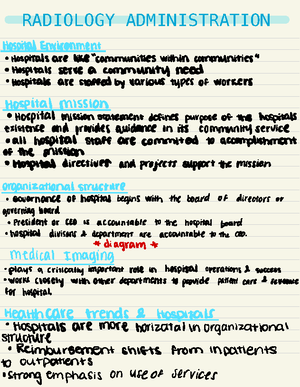 RADIOLOGY ADMINISTRATION
Hospital Environment
• Hospitals are like "communities within communities"
• Hospitals serve a community need
• Hospitals are staffed by various types of workers
Hospital mission
• Hospital mission statement defines purpose of the hospitals
existence and provides guidance in its community service
• all hospital staff are committed to accomplishment
of the mission
• Hospital directives and projects support the mission
Organizational structure
• Governance of hospital begins with the board of directors or
governing board
• President or CEO is accountable to the hospital board
• hospital divisions & department are accountable to the CEO.
* diagram *
Medical Imaging
• plays a critically important role in hospital operations & success
• works closely with other departments to provide patient care & revenue
for hospital
Healthcare trends & hospitals
• Hospitals are more horizatal in organizational
structure
• Reimbursement shifts from inpatients
to outpatients
• strong emphasis on use of services